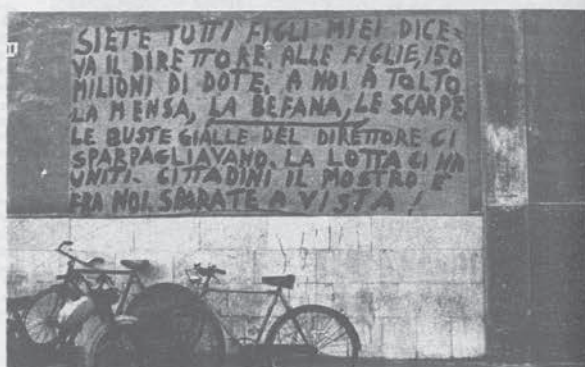 SIETE TUTTI FIGLI MIEI DICE-
VA IL DIRETTORE. ALLE FIGLIE, 150
MILIONI DI DOTE. A NOI À TOLTO
LA MENSA, LA BEFANA, LE SCARPE.
LE BUSTE GIALLE DEL DIRETTORE CI
SPARPAGLIAVANO. LA LOTTA CI HA
UNITI. CITTADINI IL MOSTRO È
FRA NOI. SPARATE A VISTA!